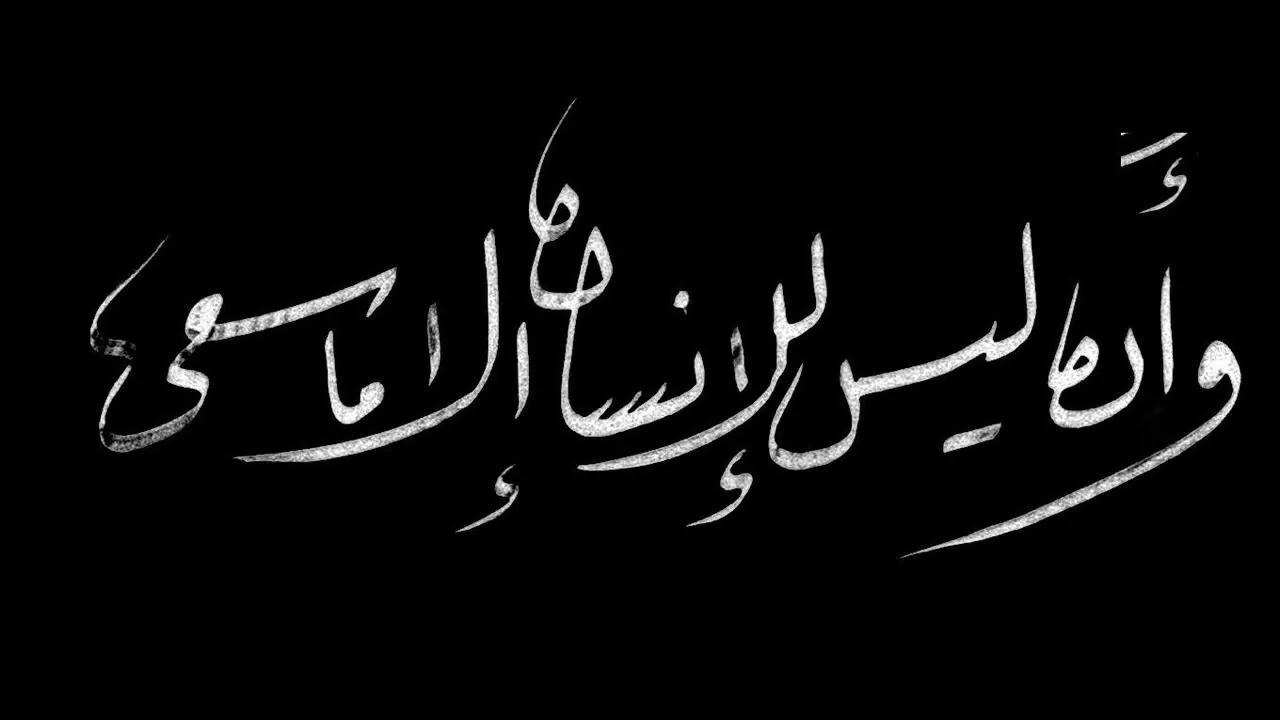 وأَن ليس للإنسان إلا ما سعى